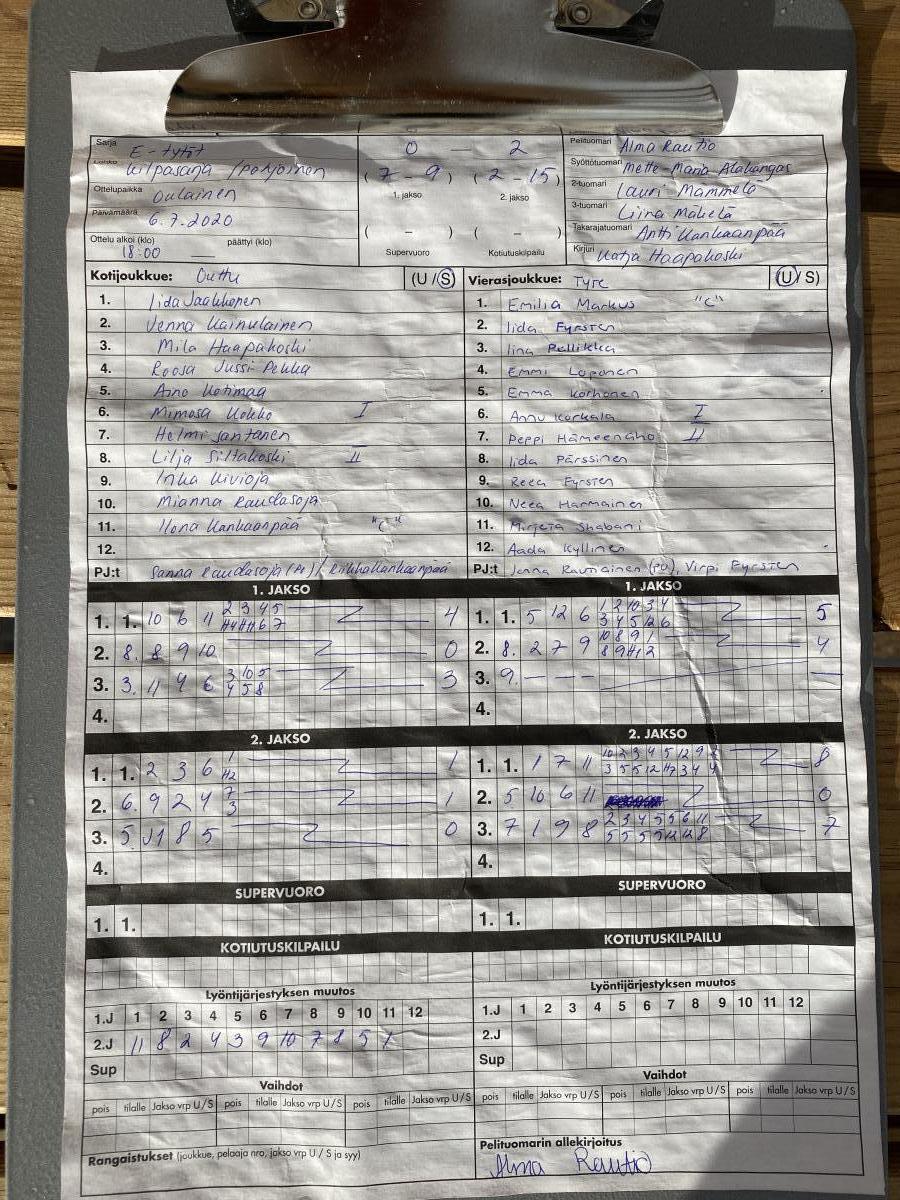 Sarja E-tytöt
Lohko Kilpasarja / Pohjoinen
Ottelupaikka Oulainen
Päivämäärä 6.7.2020
Ottelu alkoi (klo) päättyi (klo)
18:00 —
0 — 2
( 7 - 9 ) ( 2 - 15 )
1. jakso 2. jakso
( - ) ( - )
Supervuoro Kotiutuskilpailu
Pelituomari Alma Rautio
Syöttötuomari Mette-Maria Alakangas
2-tuomari Lauri Mammela
3-tuomari Liina Mäkelä
Takarajatuomari Antti Kankaanpää
Kirjuri Katja Haapakoski
Kotijoukkue: Outtu (U / S)
1. Iida Jaakkonen
2. Jenna Kainulainen
3. Mila Haapakoski
4. Roosa Jussi-Pekka
5. Aino Kotimaa
6. Mimosa Kokko I
7. Helmi Santanen
8. Lilja Siltakoski II
9. Inka Kivioja
10. Mianna Raudasoja
11. Ilona Kankaanpää "C"
12.
PJ:t Sanna Raudasoja
Vierasjoukkue: Tyrc (U / S)
1. Emilia Markus "C"
2. Iida Fyrsten
3. Iina Pellikka
4. Emmi Loponen
5. Emma Korhonen
6. Annu Korkala I
7. Peppi Hämeenaho II
8. Iida Pärssinen
9. Reea Fyrsten
10. Neea Harmainen
11. Mirjeta Shabani
12. Aada Kyllinen
PJ:t Jenna Raunainen (PJ), Virpi Fyrsten
1. JAKSO
1. 1. 10 6 11 2 3 4 5 4
2. 8. 8 9 10 0
3. 3. 11 4 6 3 10 5 3
4 5 8
4.
1. JAKSO
1. 1. 5 12 6 1 2 10 3 4 5
3 4 5 12 6
2. 8. 2 7 9 10 8 9 1 4
3. 9. — — — —
4.
2. JAKSO
1. 1. 2 3 6 1 1
H2
2. 6. 9 2 4 7 1
3
3. 5. 11 8 5 0
4.
2. JAKSO
1. 1. 1 7 11 10 2 3 4 5 12 9 8
3 5 5 12 H7 3 4 4
2. 5 10 6 11 0
3. 7 1 9 8 2 3 4 5 5 6 11 7
5 5 5 5 12 12 8
4.
SUPERVUORO
1. 1.
SUPERVUORO
1. 1.
KOTIUTUSKILPAILU
KOTIUTUSKILPAILU
Lyöntijärjestyksen muutos
1.J 1 2 3 4 5 6 7 8 9 10 11 12
2.J 11 8 2 4 3 9 10 7 8 5 1
Sup
Lyöntijärjestyksen muutos
1.J 1 2 3 4 5 6 7 8 9 10 11 12
2.J
Sup
Vaihdot
pois tilalle Jakso vrp U / S pois tilalle Jakso vrp U / S pois tilalle Jakso vrp U / S
Vaihdot
pois tilalle Jakso vrp U / S pois tilalle Jakso vrp U / S pois tilalle Jakso vrp U / S
Rangaistukset (joukkue, pelaaja nro, jakso vrp U / S ja syy)
Pelituomarin allekirjoitus
Alma Rautio